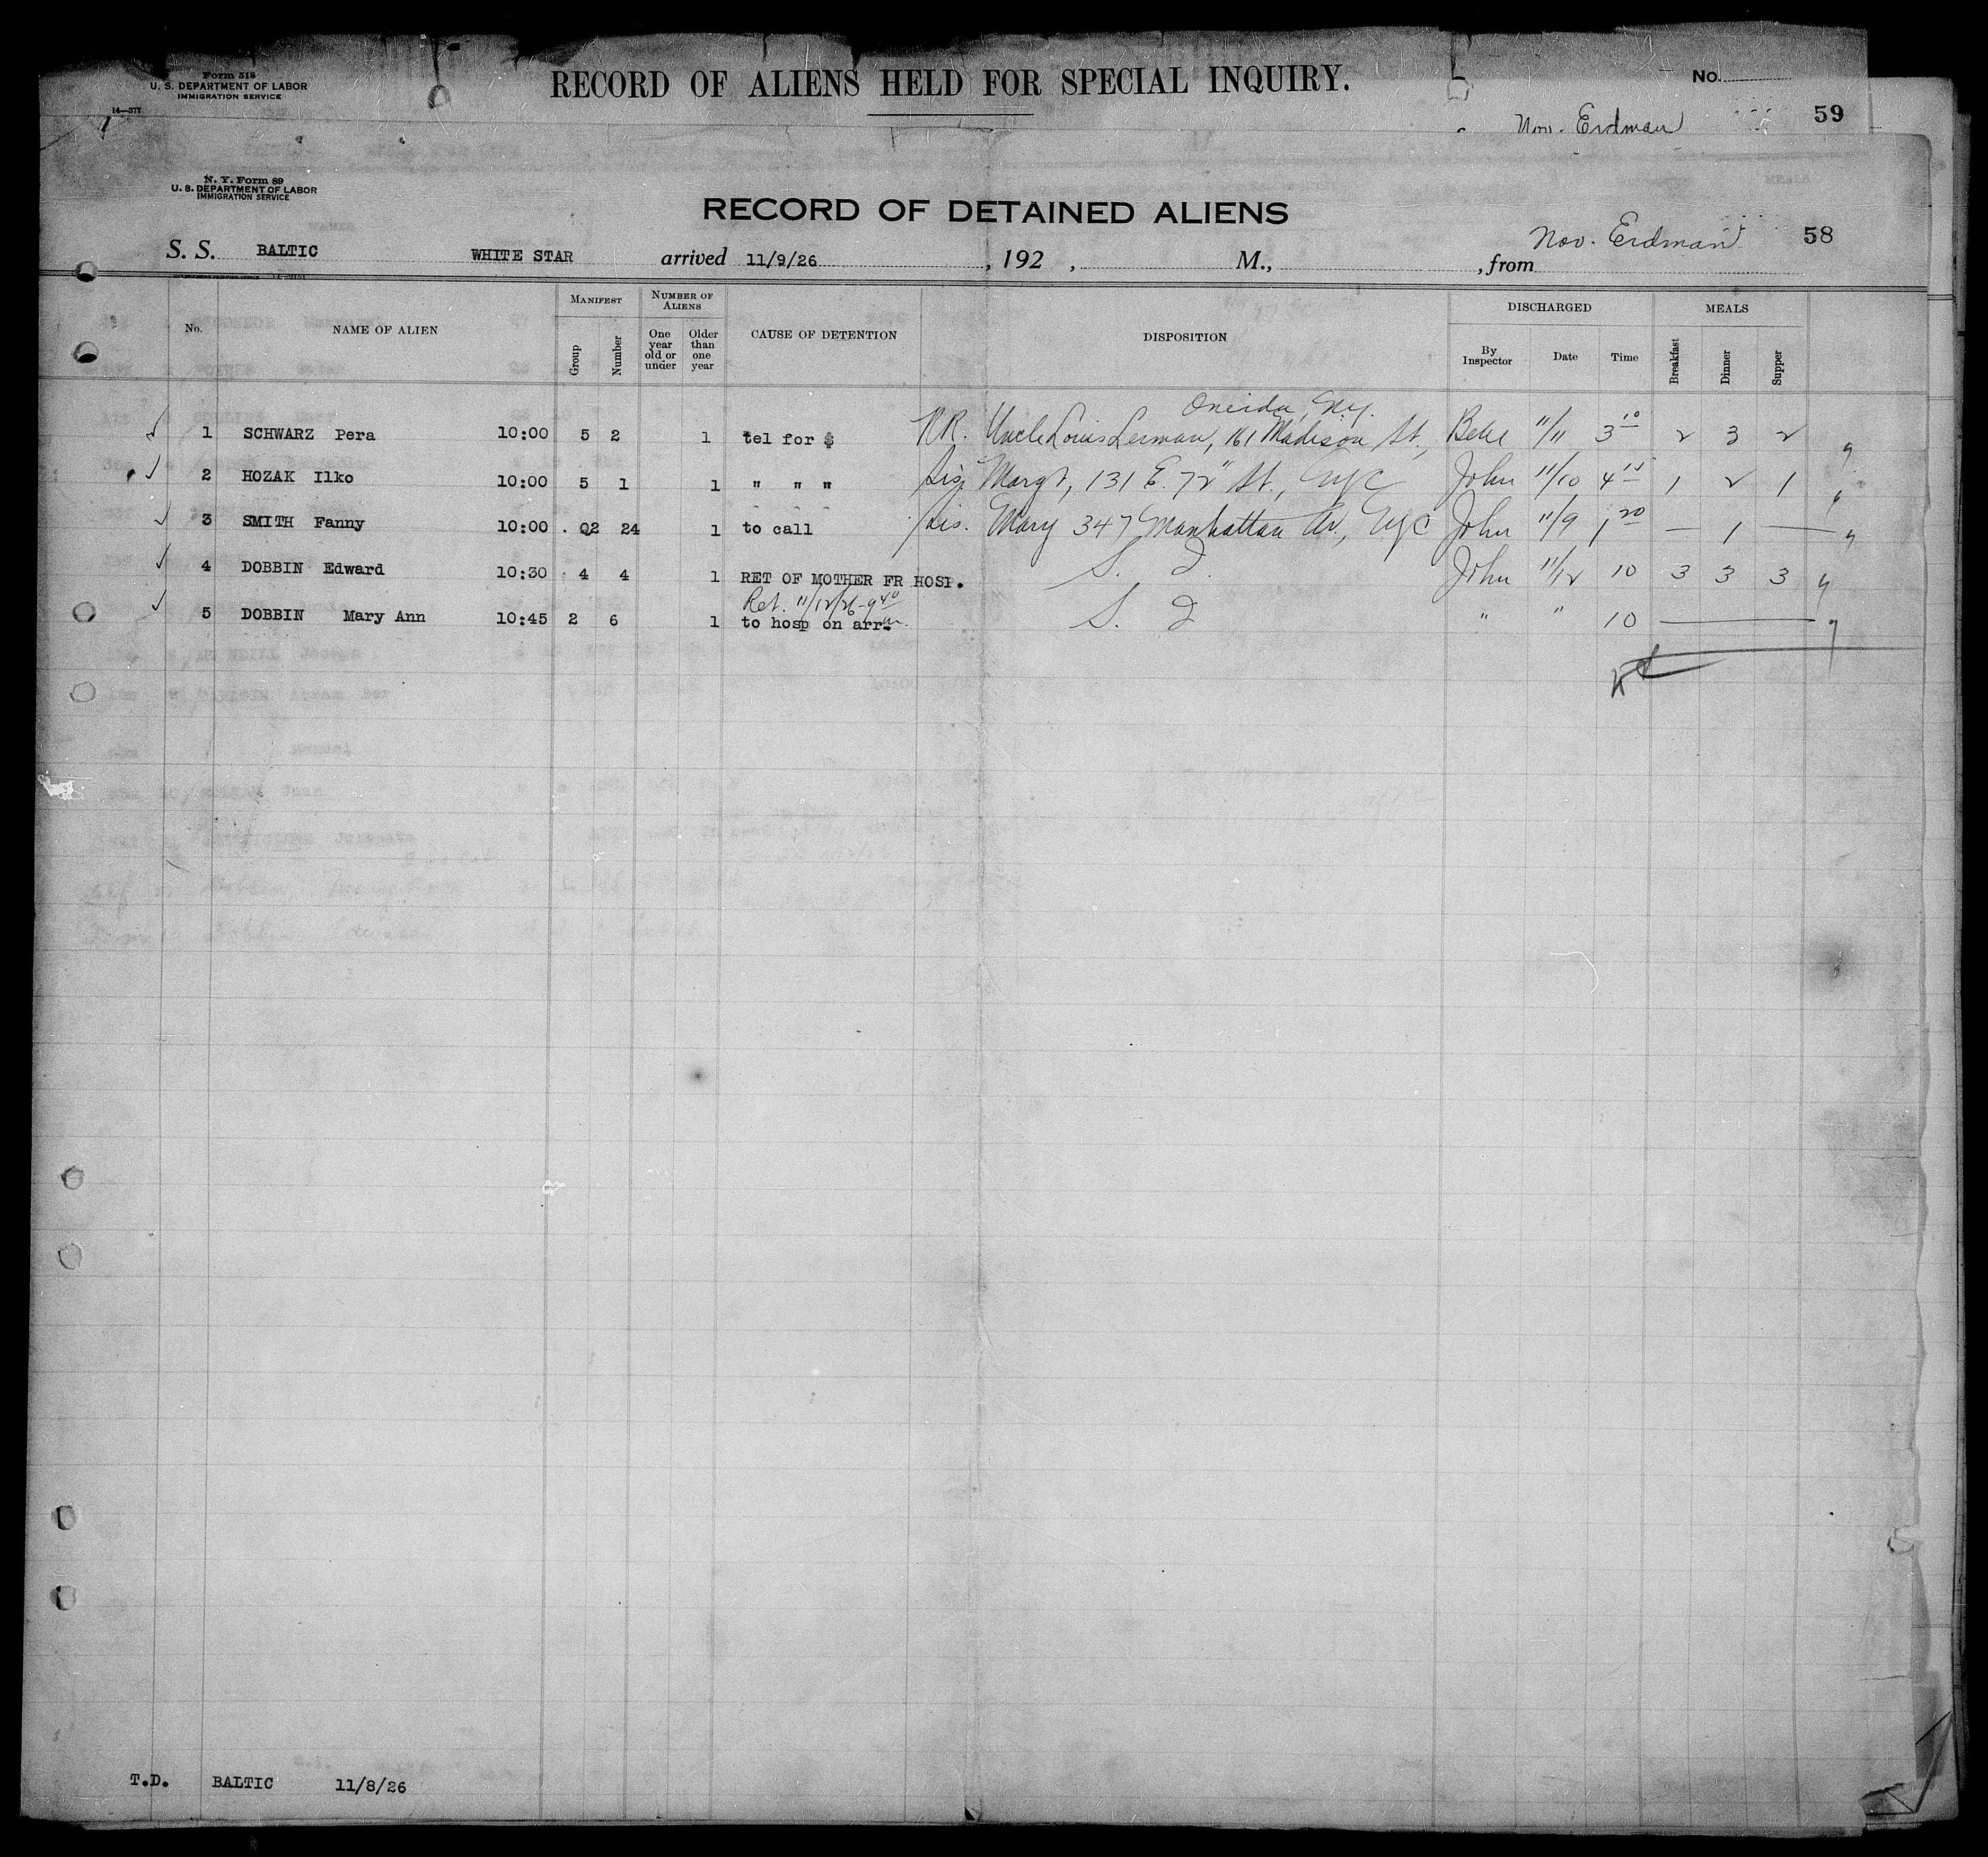 Form 518
U. S. DEPARTMENT OF LABOR
IMMIGRATION SERVICE
14—377
RECORD OF ALIENS HELD FOR SPECIAL INQUIRY.
No.
Nov. Erdman 59
N. Y. Form 89
U. S. DEPARTMENT OF LABOR
IMMIGRATION SERVICE
RECORD OF DETAINED ALIENS
Nov. Erdman 58
S. S. BALTIC WHITE STAR arrived 11/9/26, 192 , M., , from
No. NAME OF ALIEN MANIFEST Group Number NUMBER OF ALIENS One year old or under Older than one year CAUSE OF DETENTION DISPOSITION DISCHARGED By Inspector Date Time MEALS Breakfast Dinner Supper
Oneida, N.y.
1 SCHWARZ Pera 10:00 5 2 1 tel for $ RR. Uncle Louis Lerman, 161 Madison St., 11/11 3 10 2 3 2
2 HOZAK Ilko 10:00 5 1 1 " " " Sis. Margt, 131 E. 72" St., NYC John 11/10 4 1 2 1
3 SMITH Fanny 10:00 02 24 1 to call Sis. Mary 347 Manhattan Av., NYC John 11/9 1 20 — 1 —
4 DOBBIN Edward 10:30 4 4 1 RET OF MOTHER FR HOSP. S. I. John 11/12 10 3 3 3
Ret. 11/12/26-9 40
5 DOBBIN Mary Ann 10:45 2 6 1 to hosp on arr. S. I " " 10
T.D. BALTIC 11/8/26